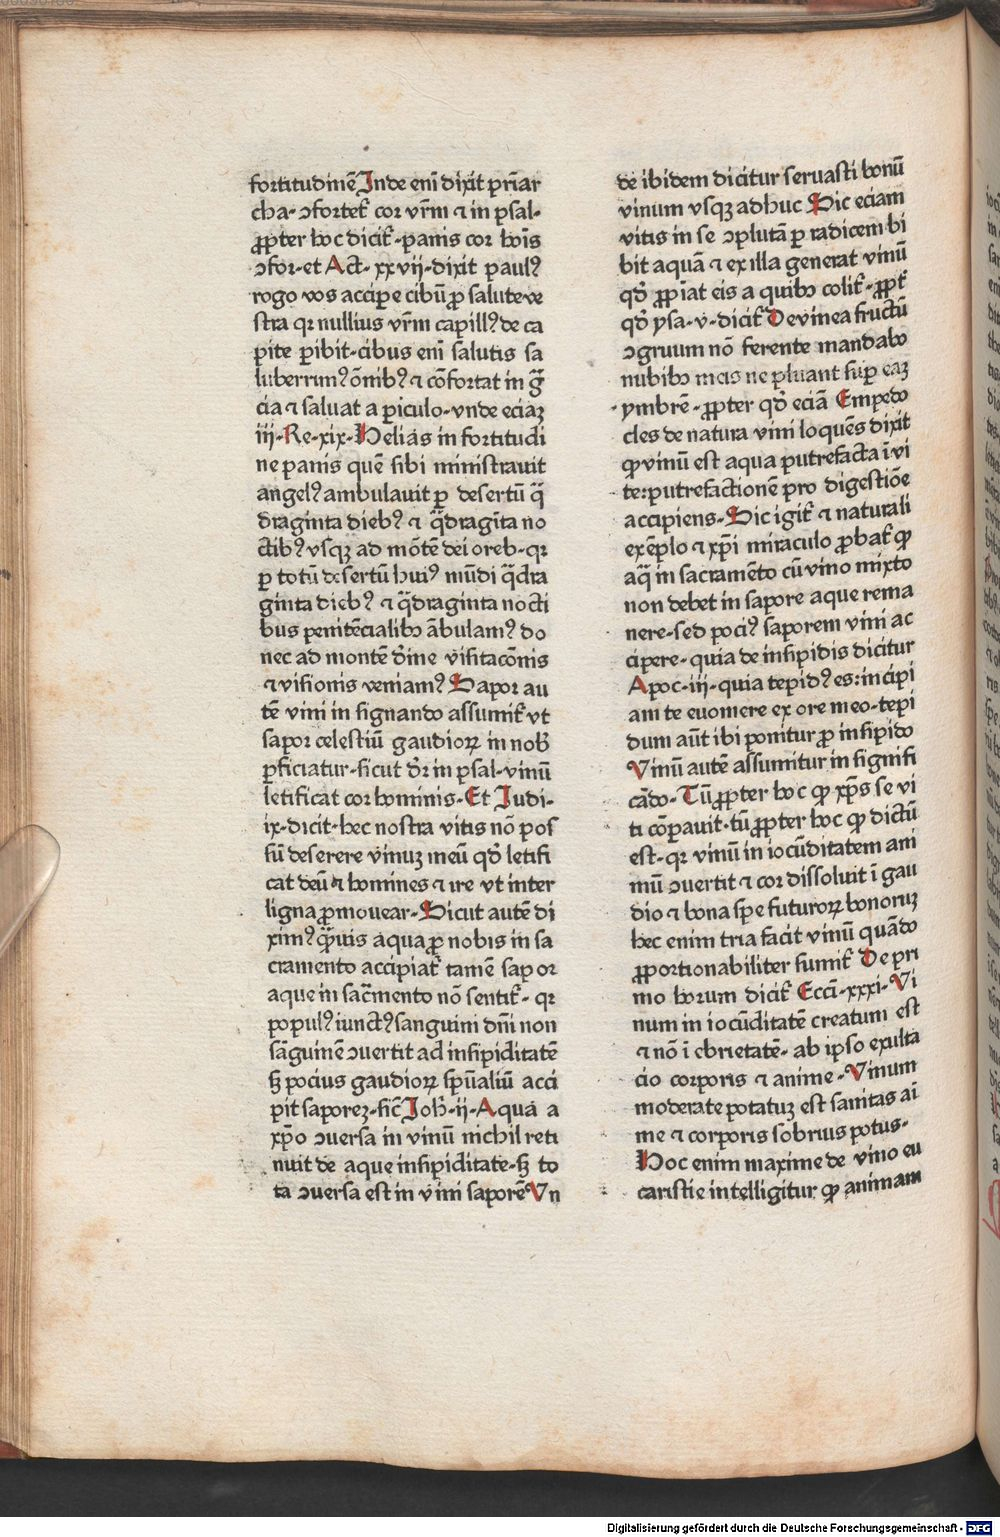 fortitudinē Inde enī dixit pr̄iar
cha· ꝯfortet᷑ cor vr̄m ⁊ in psal-
ꝓpter hoc dicit᷑· panis cor hoīs
ꝯfor· et Act· xxvij· dixit paulꝰ
rogo vos accipe cibū ꝓ salute ve
stra qꝛ nullius vr̄m capillꝰ de ca
pite ꝑibit· cibus enī salutis sa
luberrimꝰ oīnibꝰ ⁊ cōfortat in gr̄a
cia ⁊ saluat a ꝑiculo· vnde eciaꝫ
iij· Re· xix· Helias in fortitudi
ne panis quē sibi ministrauit
angelꝰ ambulauit ꝑ desertū q̄
draginta diebꝰ ⁊ q̄draginta no
ctibꝰ vsqꝫ ad mōtē dei oreb· qꝛ
ꝑ totū desertū huiꝰ mūdi q̄dra
ginta diebꝰ ⁊ q̄draginta nocti
bus penitēcialibꝰ ābulamꝰ do
nec ad montē dīne visitacōnis
⁊ visionis veniamꝰ Sapor au
tē vini in signando assumit᷑ vt
sapor celestiū gaudioꝝ in nob̄
ꝑficiatur· sicut dr̄ in psal· vinū
letificat cor hominis· Et Iudi-
ix· dicit· hec nostra vitis nō pos
sū deserere vinuꝫ meū qd̄ letifi
cat deū ⁊ homines ⁊ ire vt inter
ligna ꝓmouear· Sicut autē di
ximꝰ qr̄uis aqua ꝓ nobis in sa
cramento accipiat᷑ tamē sapor
aque in sac̄mento nō sentit᷑· qꝛ
populꝰ iunctꝰ sanguini dn̄i non
sāguinē ꝯuertit ad insipiditatē
sꝫ pocius gaudioꝝ spūaliū acci
pit saporeꝫ· sic̄ Ioh̄· ij· Aqua a
xp̄o ꝯuersa in vinū nichil reti
nuit de aque insipiditate· sꝫ to
ta ꝯuersa est in vini saporē Vn
de ibidem dicitur seruasti bonū
vinum vsqꝫ adhuc Sic eciam
vitis in se ꝯplutā ꝑ radicem bi
bit aquā ⁊ ex illa generat vinū
qd̄ ꝓpīat eis a quibꝰ colit᷑· ꝓpt᷑
qd̄ ysa· v· dicit᷑ De vinea fructū
ꝯgruum nō ferente mandabo
nubibꝰ meis ne pluant suꝑ eaꝫ
ymbrē· ꝓpter qd̄ eciā Empedo
cles de natura vini loquēs dixit
ꝙ vinū est aqua putrefacta ī vi
te: putrefactionē pro digestiōe
accipiens· Sic igit᷑ ⁊ naturali
exēplo ⁊ xp̄i miraculo ꝓbat᷑ ꝙ
aq̄ in sacramēto cū vino mixto
non debet in sapore aque rema
nere· sed pociꝰ saporem vini ac
cipere· quia de insipidis dicitur
Apoc· iij· quia tepidꝰ es: incipi
am te euomere ex ore meo· tepi
dum aūt ibi ponitur ꝓ insipido
Vinū autē assumitur in signifi
cādo· Tū ꝓpter hoc ꝙ xp̄s se vi
ti cōpauit· tū ꝓpter hoc ꝙ dictū
est· qꝛ vinū in iocūditatem ani
mū ꝯuertit ⁊ cor dissoluit ī gau
dio ⁊ bona spe futuroꝝ bonoruꝫ
hec enim tria facit vinū quādo
ꝓportionabiliter sumit᷑ De pri
mo horum dicit᷑ Eccī· xxxi· Vi
num in iocūditatē creatum est
⁊ nō ī ebrietatē· ab ipso exulta
cio corporis ⁊ anime· Vinum
moderate potatuꝫ est sanitas aī
me ⁊ corporis sobrius potus·
Hoc enim maxime de vino eu
caristie intelligitur ꝙ animam
Digitalisierung gefördert durch die Deutsche Forschungsgemeinschaft - DFG